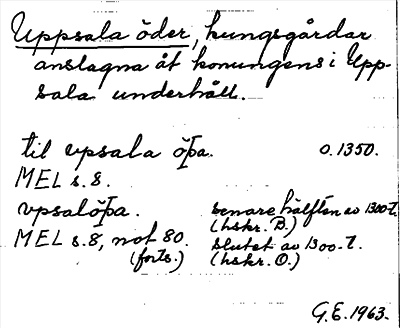 Uppsala öder, kungsgårdar
anslagna åt konungens i Upp-
sala underhåll.
til vpsala öþa. o.1350.
MEL s.8.
vpsalöþa. senare hälften av 1300-t.
(hskr. B.)
MEL s.8, not 80. slutet av 1300-t.
(forts.) (hskr. O.)
G.E. 1963.